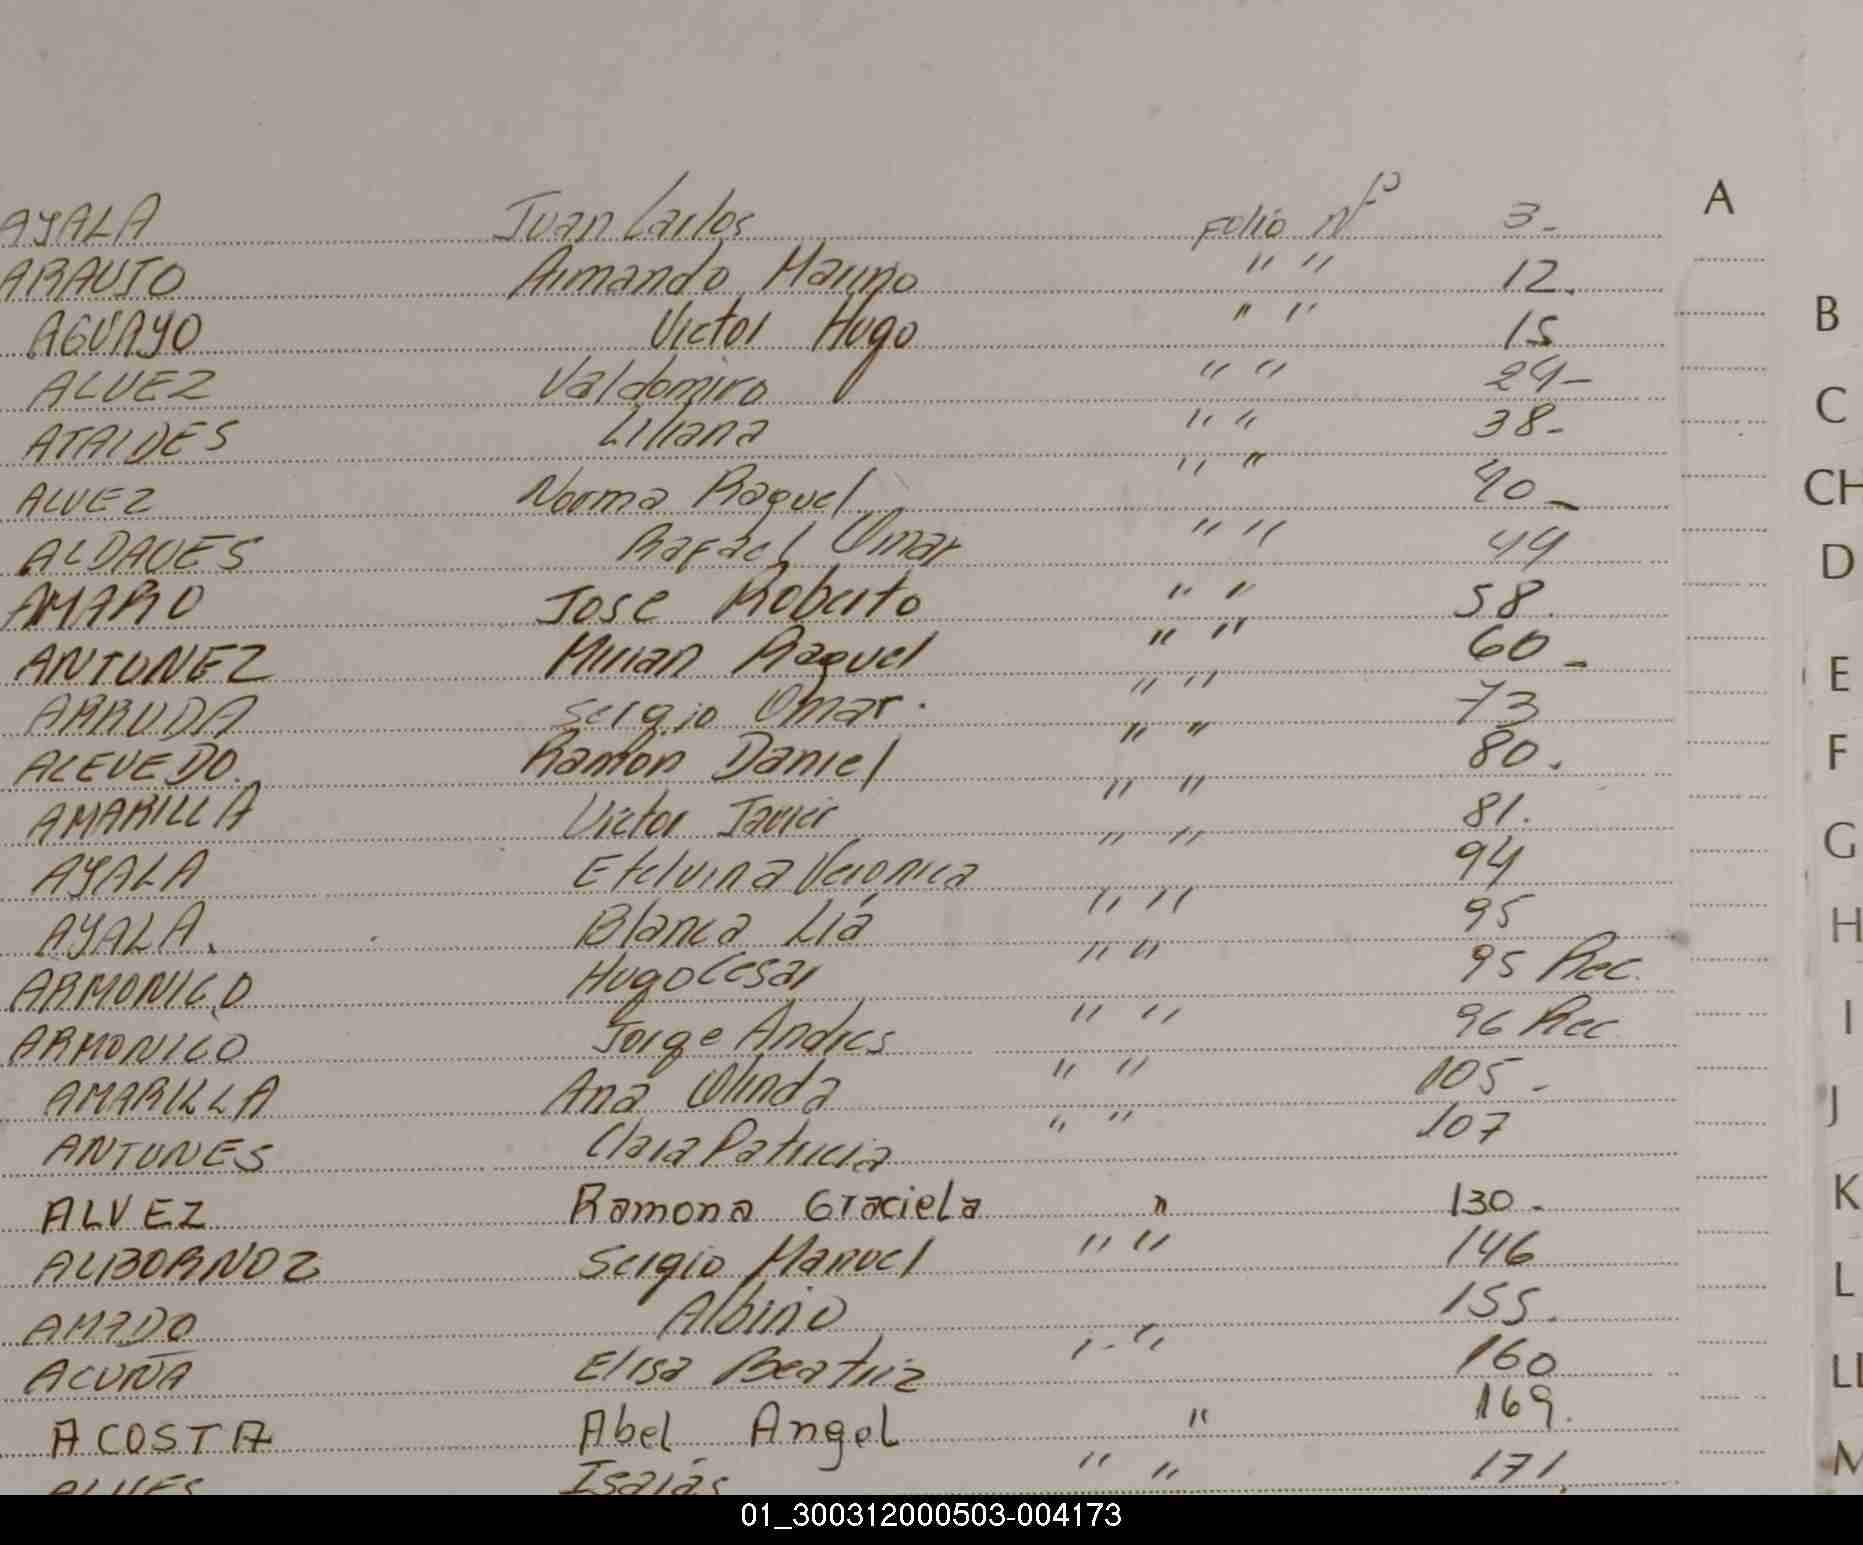 AYALA Juan Carlos Folio Nº 3-
A
ARAUJO Armando Marino " " 12.
AGUAYO Victor Hugo " " 15
B
ALVEZ Valdomiro " " 24-
ATAIDES Liliana " " 38-
C
ALVEZ Norma Raquel " " 40-
CH
ALDAVES Rafael Omar " " 44
D
AMARO Jose Roberto " " 58.
ANTUNEZ Mirian Raquel " " 60-
E
ARRUDA Sergio Omar. " " 73
ACEVEDO. Ramon Daniel " " 80.
F
AMARILLA Victor Javier " " 81.
AYALA Etelvina Veronica " " 94
G
AYALA. Blanca Lia " " 95
H
ARMONICO Hugo Cesar " " 95 Rec.
ARMONICO Jorge Andres " " 96 Rec
I
AMARILLA Ana Olinda " " 105-
J
ANTUNES Clara Patricia " " 107
ALVEZ Ramona Graciela " 130-
K
ALBORNOZ Sergio Manuel " " 146
L
AMADO Albino 155.
ACUÑA Elisa Beatriz " " 160
LL
ACOSTA Abel Angel " 169.
ALVES Isaias " " 171.
M
01_300312000503-004173